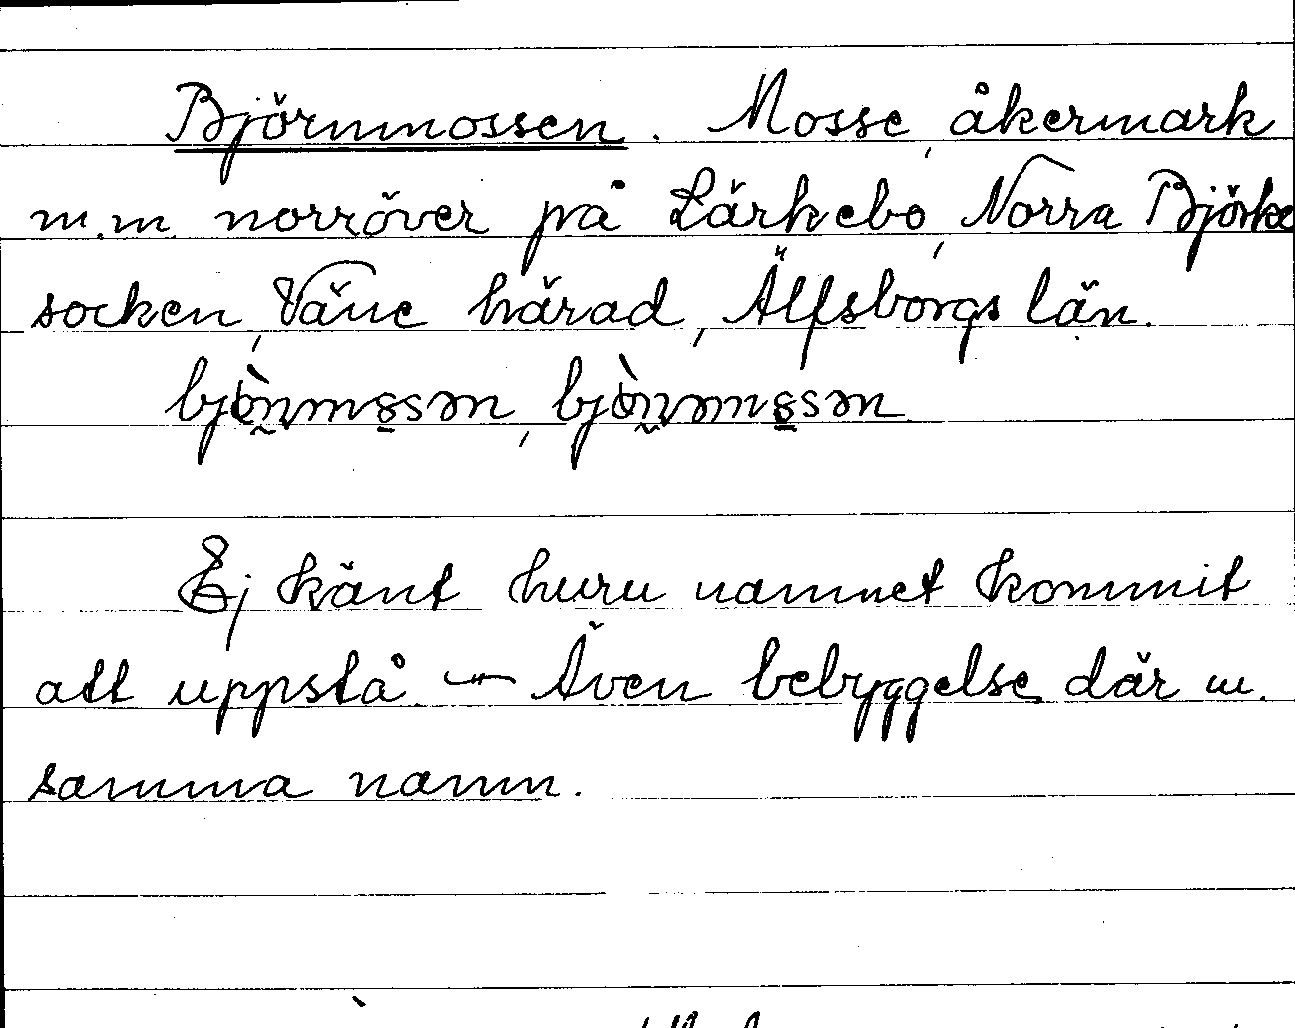 Björnmossen. Mosse, åkermark
m.m. norröver på Lärkebo, Norra Björke
socken, Väne härad, Älfsborgs län.
Ej känt huru namnet kommit
att uppstå. — Även bebyggelse där m.
samma namn.